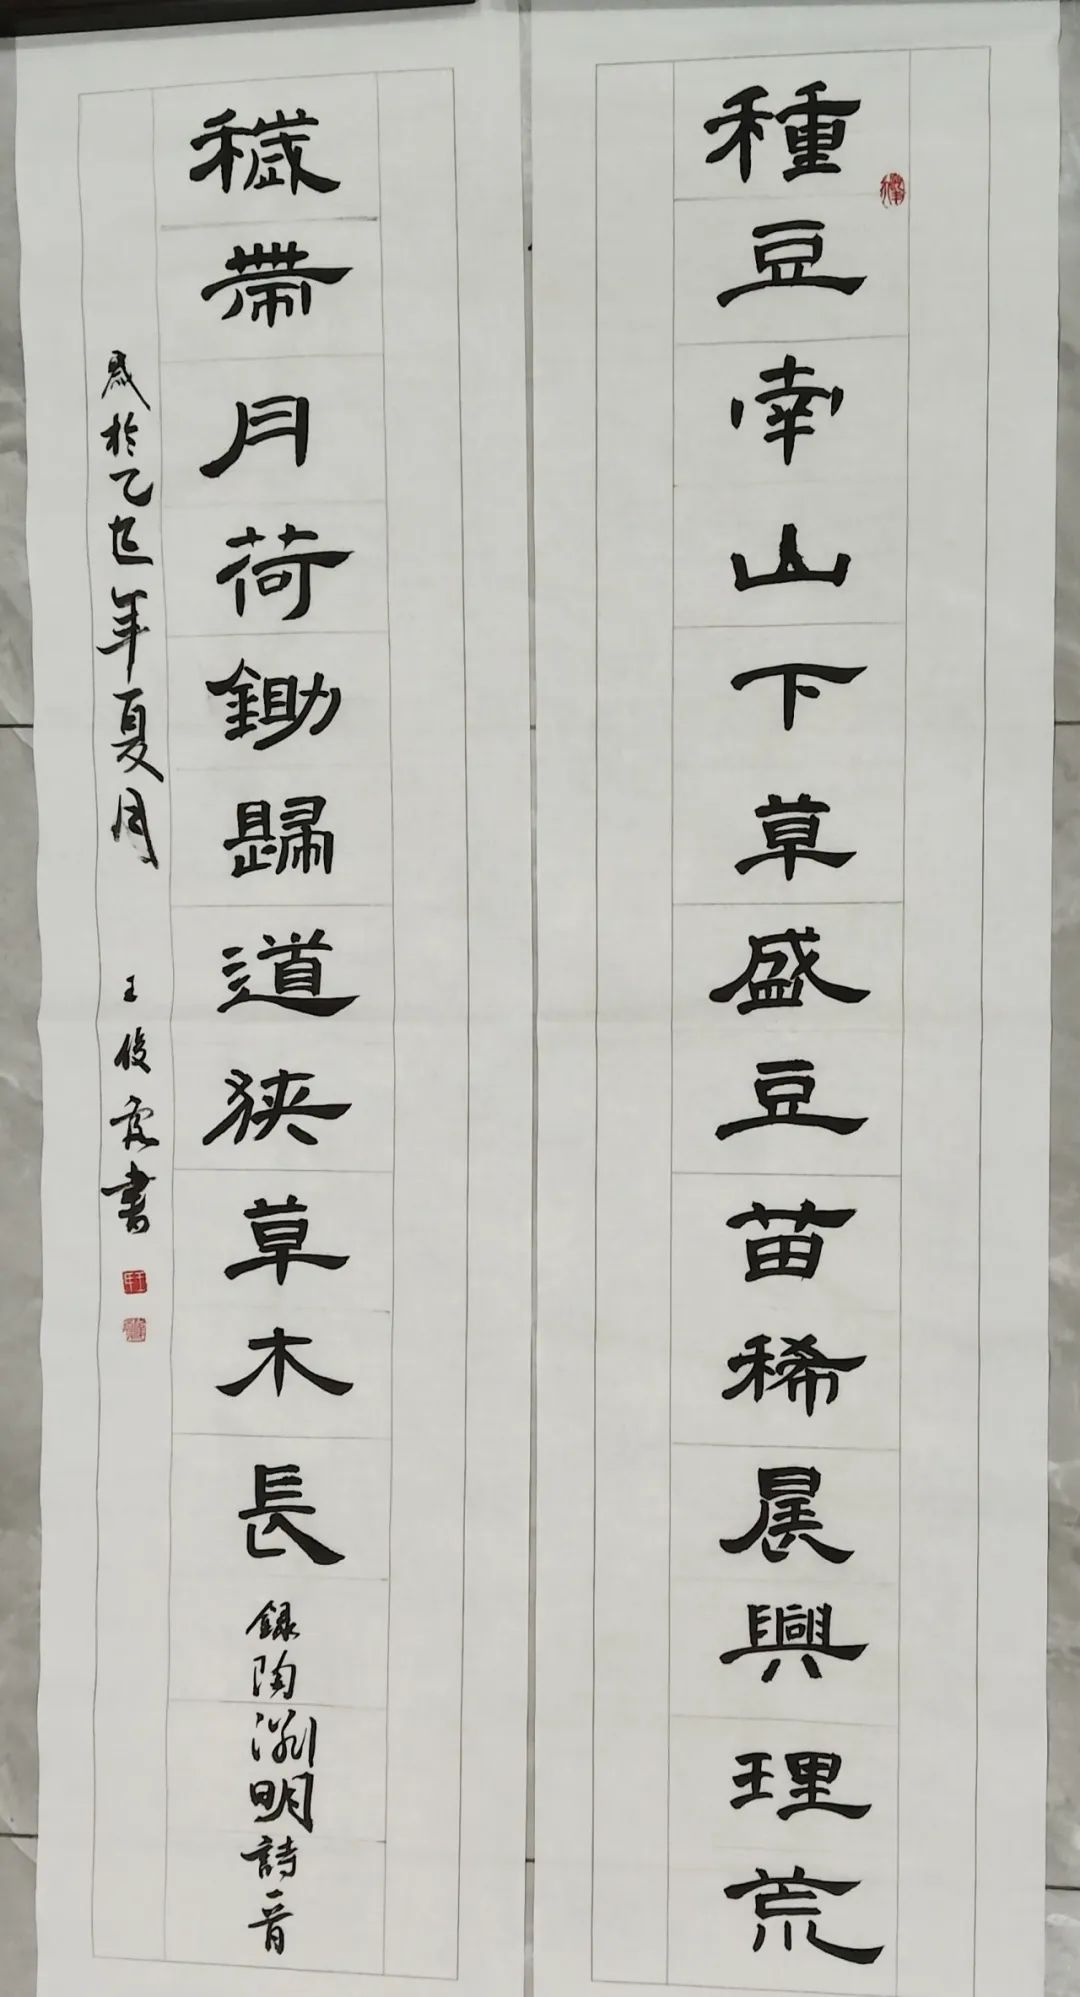 種豆南山下草盛豆苗稀晨興理荒
穢帶月荷鋤歸道狹草木長
録陶淵明詩一首
歲於乙巳年夏月 王俊霞書